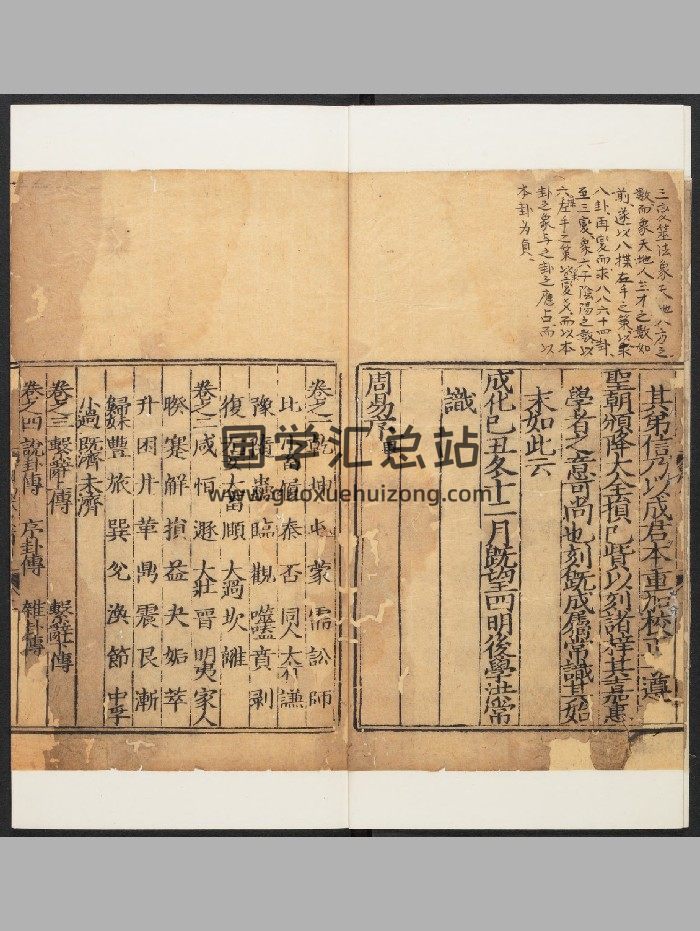 三変筮法象天地人方之
數而象天地人三才之數如
前遂以八揲左手之策以求
八卦再変而求八八六十四卦
至三変象六子陰陽之數以
六揲左手之策以変爻而以本
卦之象与之卦之應占而以
本卦为貞
其弟信乃以成君本重加校
遵
聖朝頒降大全損己貲以刻諸梓其嘉惠
學者之意可尚也刻既成舊常識其始
末如此云
成化己丑冬十二月既望四明後學洪常
識
周易序畢
卷之一 乾 坤 屯 蒙 需 訟 師
比 小畜 履 泰 否 同人 大有 謙
豫 隨 蠱 臨 觀 噬嗑 賁 剥
復 大畜 頤 大過 坎 離
卷之二 咸 恒 遯 大壯 晉 明夷 家人
睽 蹇 解 損 益 夬 姤 萃
升 困 井 革 鼎 震 艮 漸
歸妹 豐 旅 巽 兌 渙 節 中孚
小過 既濟 未濟
卷之三 繫辭上傳 繫辭下傳
卷之四 說卦傳 序卦傳 雜卦傳
国学汇总站
www.guoxuehuizong.com